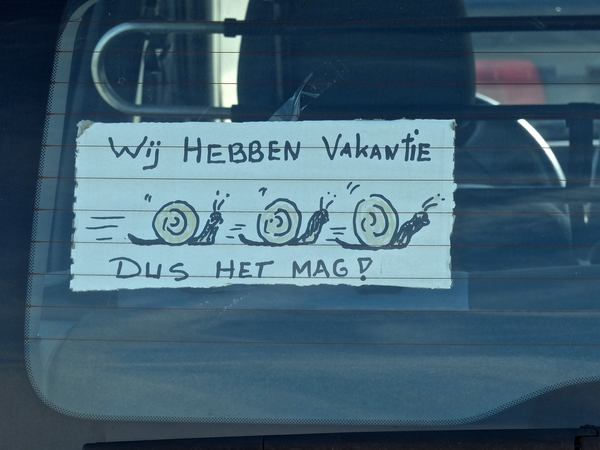 Wij HEBBEN VAKANTIE
DUS HET MAG!